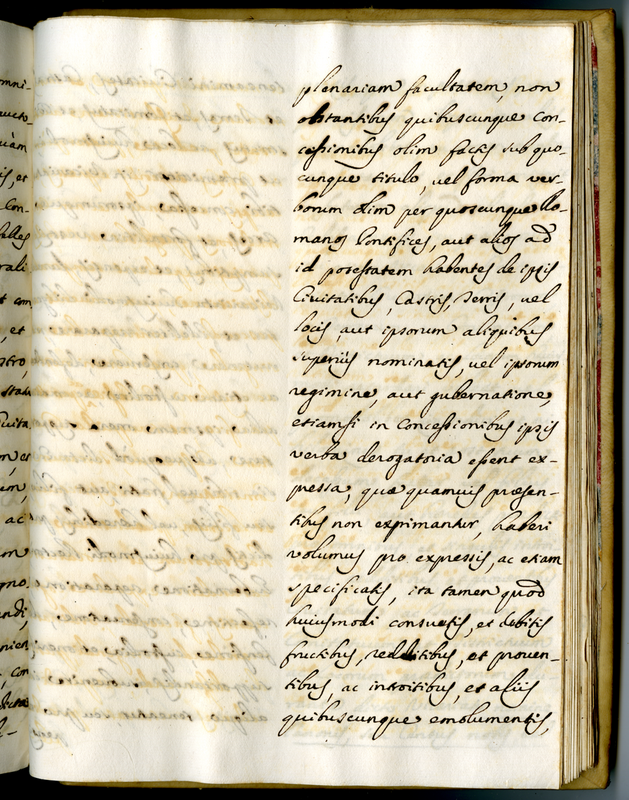 plenariam facultatem, non
obstantibus quibuscunque con-
cessionibus olim factis sub quo-
cunque titulo, vel forma ver-
borum olim per quoscunque Ro-
manos Pontifices, aut alios ad
id potestatem habentes de ipsis
Civitatibus, Castris, Terris, vel
locis, aut ipsorum aliquibus
superius nominatis, vel ipsorum
regimine, aut gubernatione,
etiamsi in concessionibus ipsis
verba derogatoria essent ex-
pressa, quæ quamuis præsen-
tibus non exprimantur, haberi
volumus pro expressis, ac etiam
specificatis, ita tamen quod
huiusmodi consuetis, et debitis
fructibus, redditibus, et proven-
tibus, ac introitibus, et aliis
quibuscunque emolumentis,